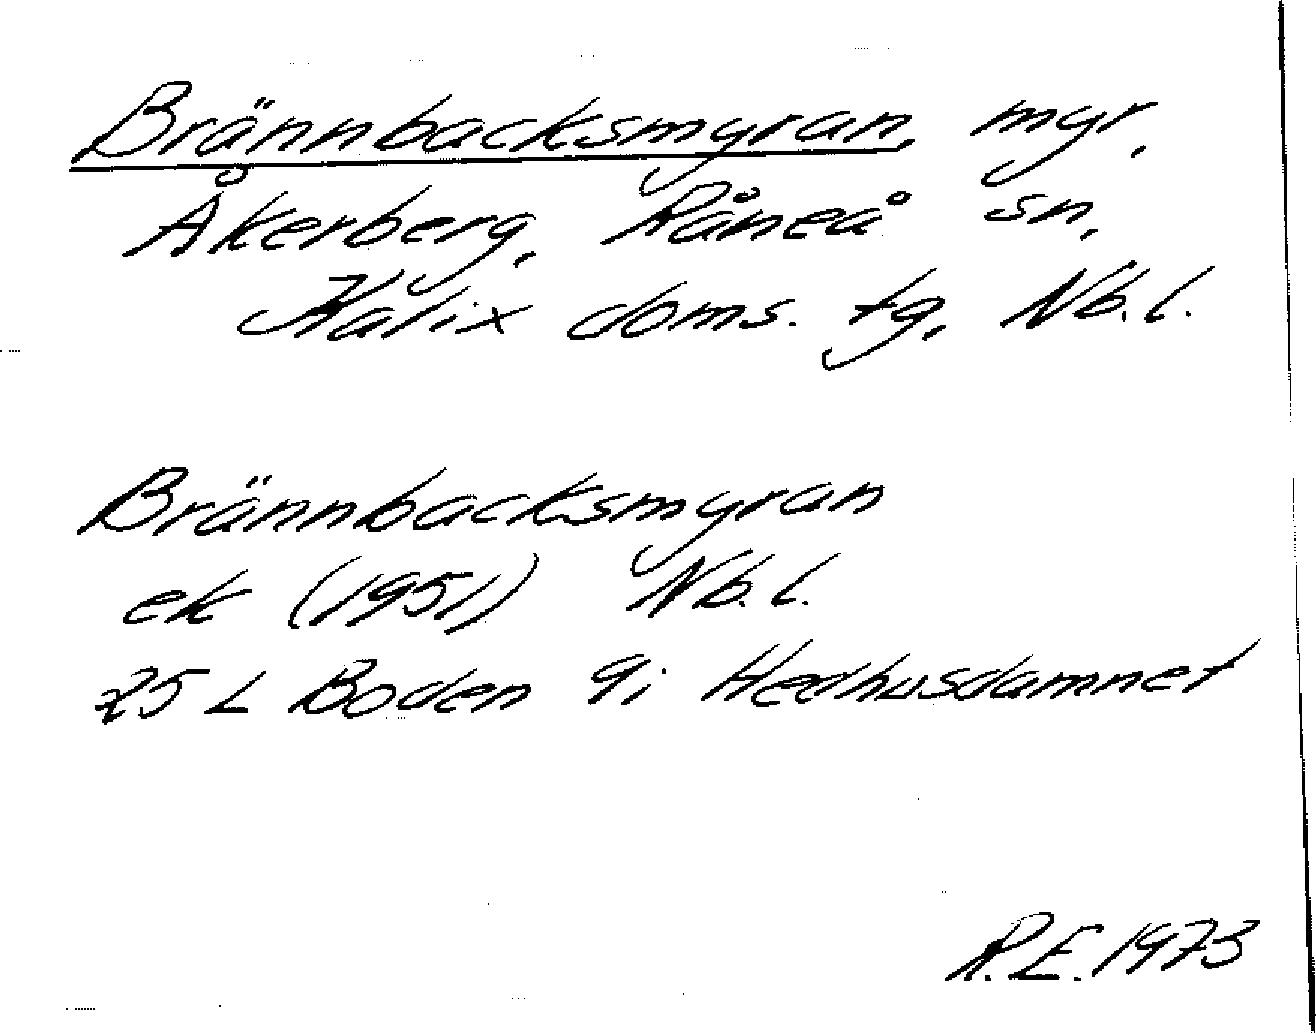 Brännbacksmyran, myr,
Åkerberg, Råneå sn,
Kalix doms. tg, Nb. l.
Brännbacksmyran
ek (1951) Nb. l.
25 L Boden 9i Hedhusdamnet
R.E. 1973